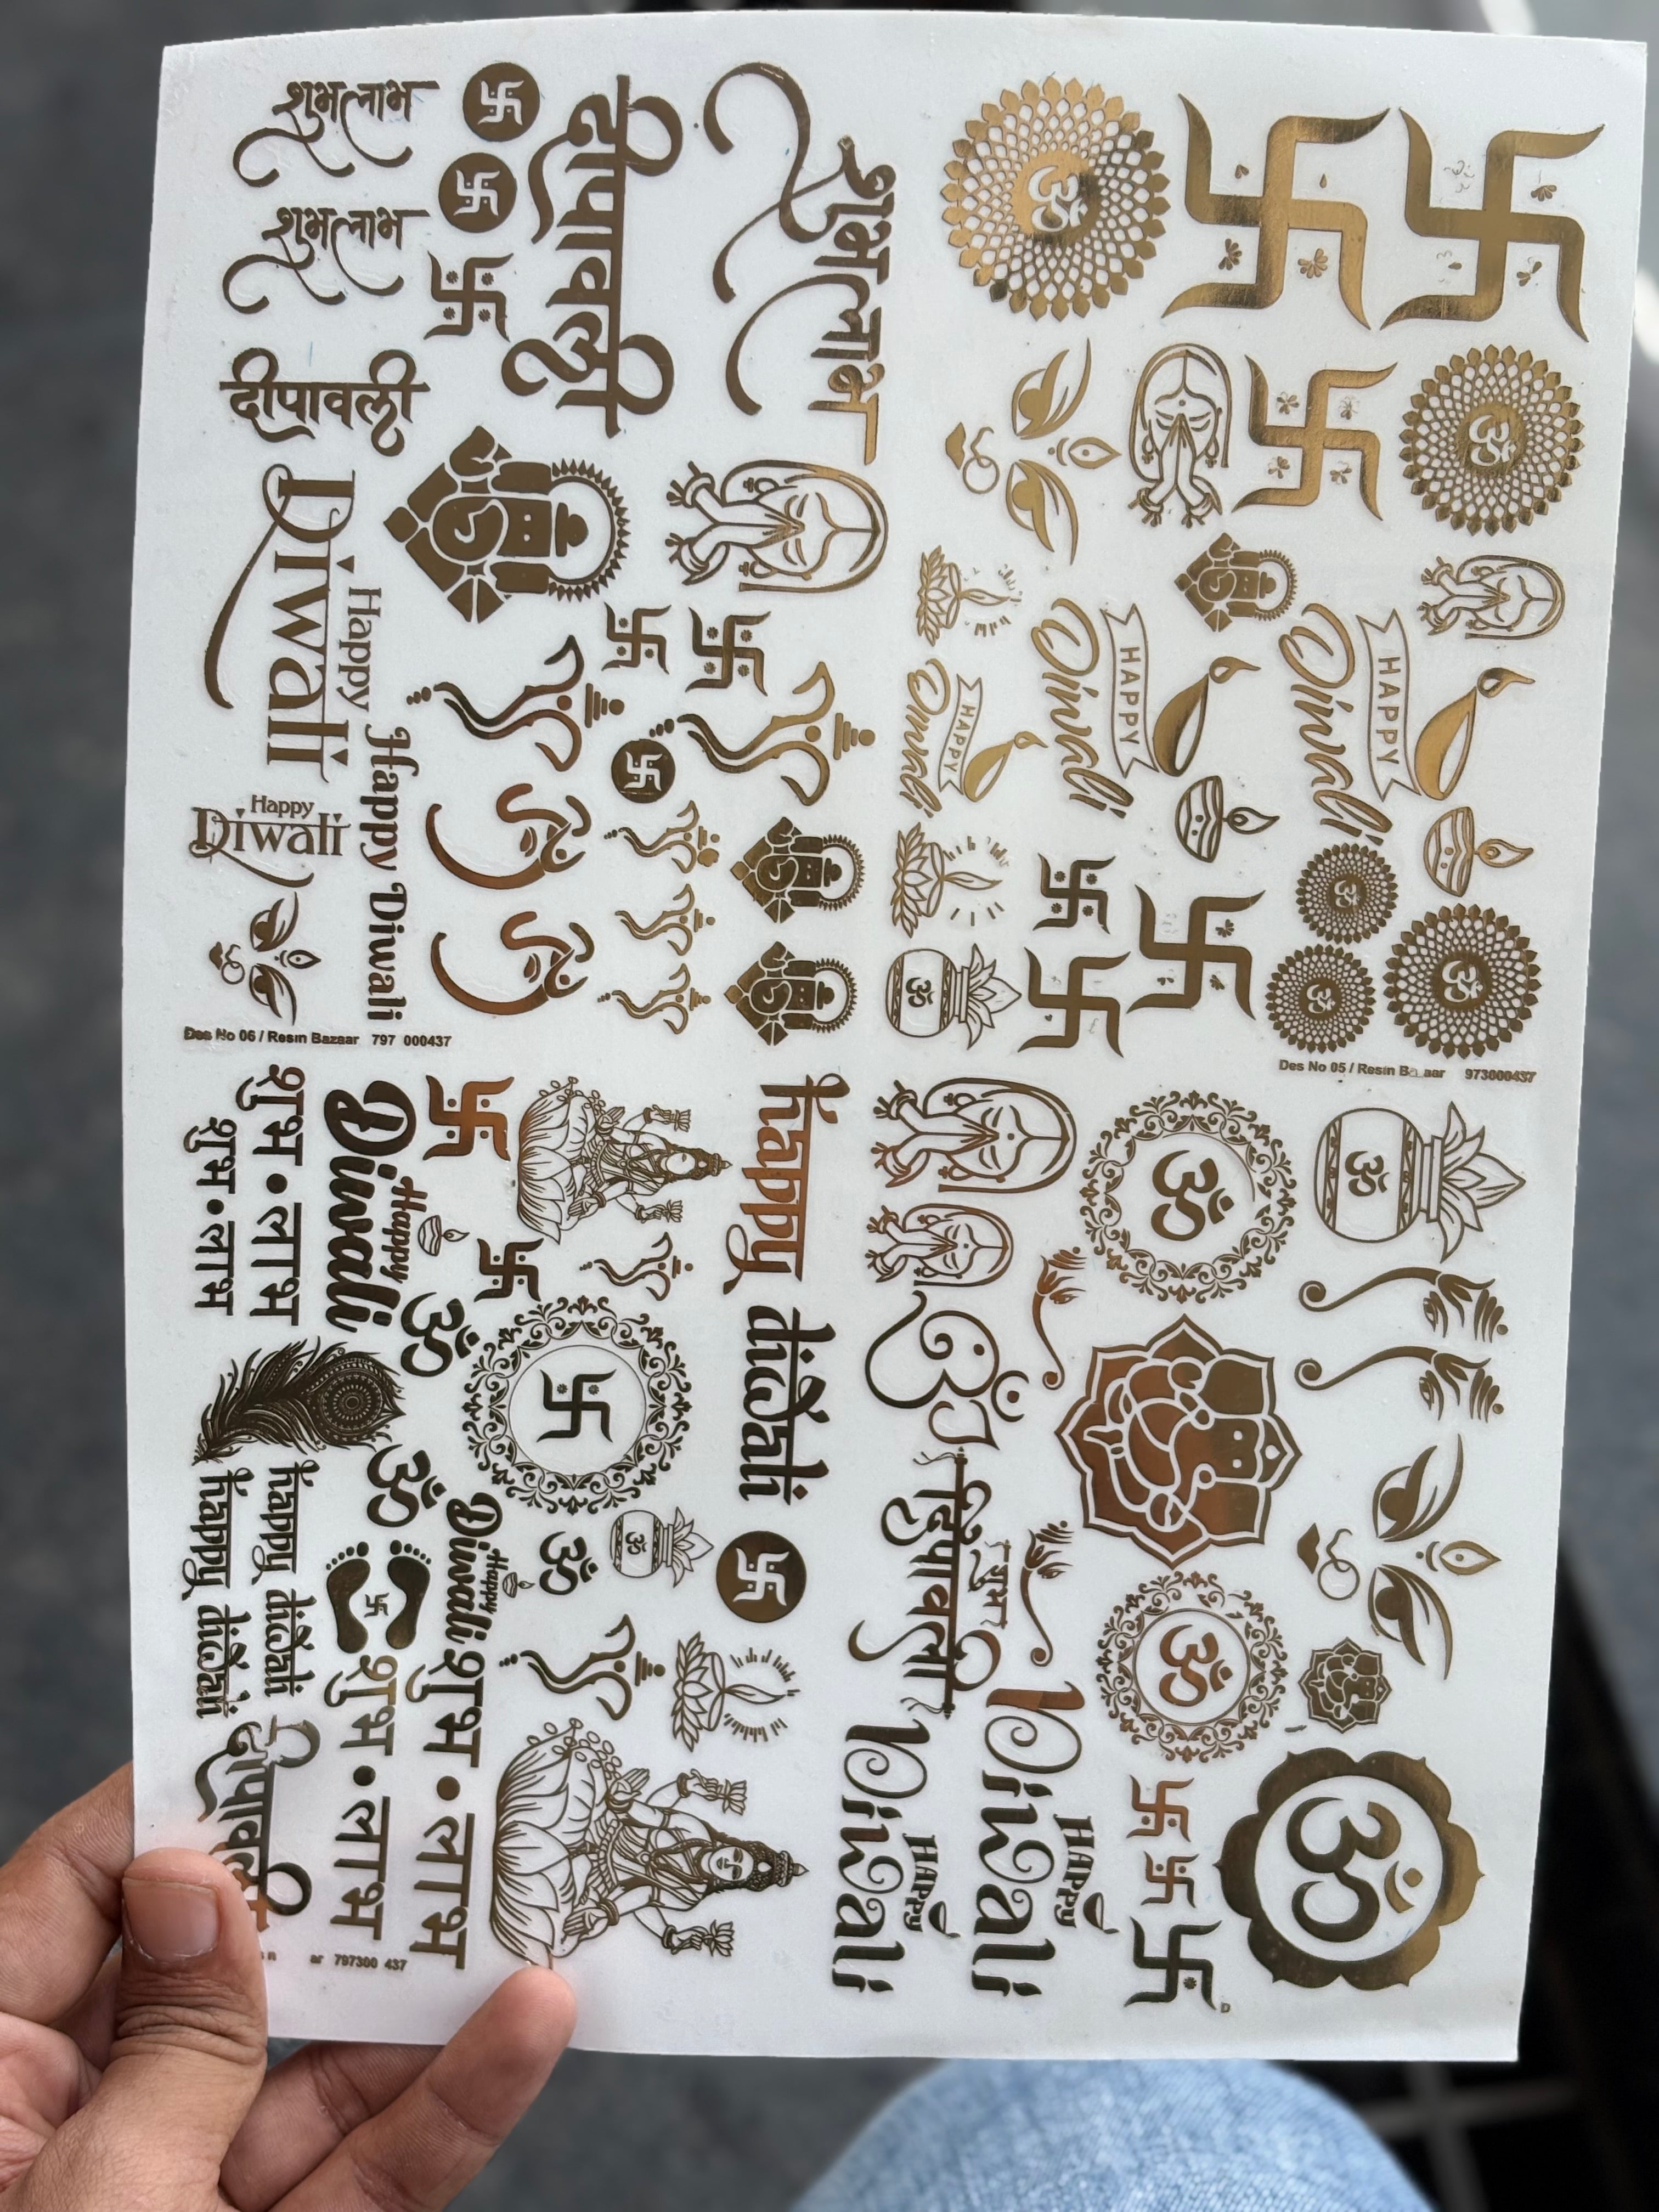 शुभ लाभ
शुभ लाभ
दीपावली
दीपावली
शुभ लाभ
ॐ
ॐ
Happy
Diwali
Happy
Diwali
Happy Diwali
HAPPY
Diwali
HAPPY
Diwali
HAPPY
Diwali
ॐ
ॐ
ॐ
ॐ
Des No 06 / Resin Bazaar 797 000437
Des No 05 / Resin B aar 973000437
शुभ • लाभ
शुभ • लाभ
Happy
Diwali
ॐ
happy diwali
ॐ
ॐ
ॐ
ॐ
शुभ
दिपावली
ॐ
happy diwali
happy diwali
ॐ
Happy
Diwali
ॐ
ॐ
शुभ • लाभ
शुभ • लाभ
दीपावली
Happy
Diwali
Happy
Diwali
ॐ
ar 797300 437